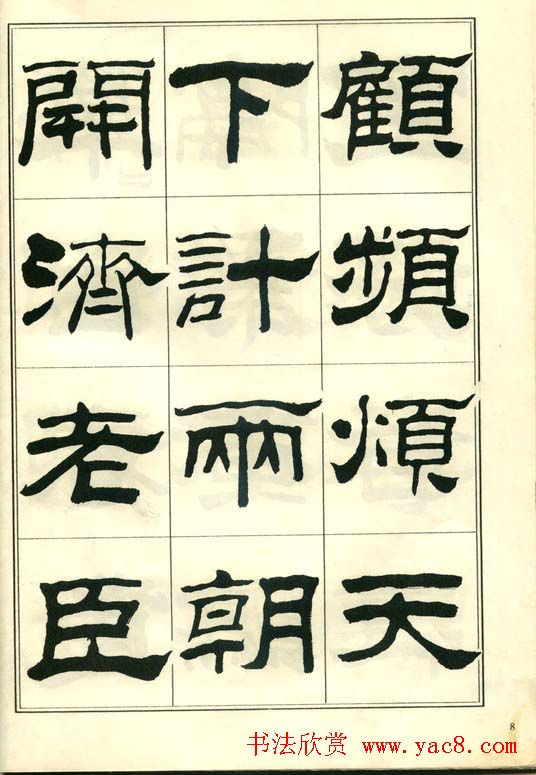 顧頻煩天
下計兩朝
開濟老臣
8
书法欣赏 www.yac8.com